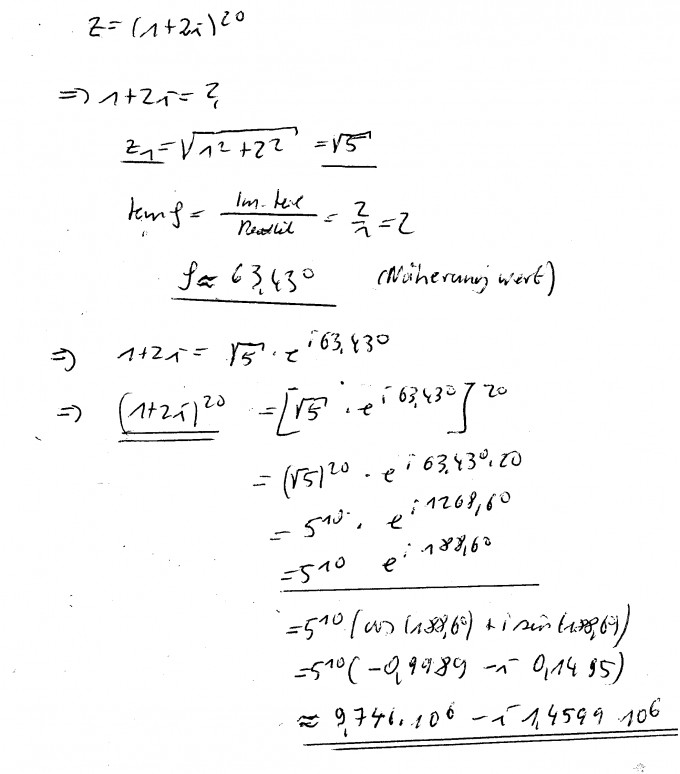 z = (1+2i)^20
=> 1+2i = ?
z1 = √(1² + 2²) = √5
tan φ = Im. teil / Realteil = 2/1 = 2
φ ≈ 63,43° (Näherungswert)
=> 1+2i = √5 · e^(i 63,43°)
=> (1+2i)^20 = [√5 · e^(i 63,43°)]^20
= (√5)^20 · e^(i 63,43°·20)
= 5^10 · e^(i 1268,6°)
= 5^10 e^(i 188,6°)
= 5^10 (cos(188,6°) + i sin(188,6°))
= 5^10 (-0,9989 - i 0,1495)
≈ 9,746·10^6 - i 1,4599 10^6